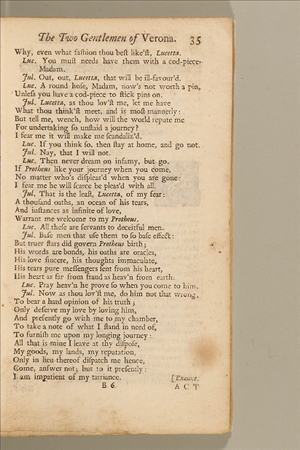 The Two Gentlemen of Verona. 35
Why, even what faſhion thou beſt like'ſt, Lucetta.
Luc. You muſt needs have them with a cod-piece-
Madam.
Jul. Out, out, Lucetta, that will be ill-favour'd.
Luc. A round hoſe, Madam, now's not worth a pin,
Unleſs you have a cod-piece to ſtick pins on.
Jul. Lucetta, as thou lov'ſt me, let me have
What thou think'ſt meet, and is moſt mannerly:
But tell me, wench, how will the world repute me
For undertaking ſo unſtaid a journey?
I fear me it will make me ſcandaliz'd.
Luc. If you think ſo, then ſtay at home, and go not.
Jul. Nay, that I will not.
Luc. Then never dream on infamy, but go.
If Protheus like your journey when you come,
No matter who's diſpleas'd when you are gone:
I fear me he will ſcarce be pleas'd with all.
Jul. That is the leaſt, Lucetta, of my fear:
A thouſand oaths, an ocean of his tears,
And inſtances as infinite of love,
Warrant me welcome to my Protheus.
Luc. All theſe are ſervants to deceitful men.
Jul. Baſe men that uſe them to ſo baſe effect:
But truer ſtars did govern Protheus birth;
His words are bonds, his oaths are oracles,
His love ſincere, his thoughts immaculate,
His tears pure meſſengers ſent from his heart,
His heart as far from fraud as heav'n from earth.
Luc. Pray heav'n he prove ſo when you come to him.
Jul. Now as thou lov'ſt me, do him not that wrong,
To bear a hard opinion of his truth;
Only deſerve my love by loving him,
And preſently go with me to my chamber,
To take a note of what I ſtand in need of,
To furniſh me upon my longing journey:
All that is mine I leave at thy diſpoſe,
My goods, my lands, my reputation,
Only in lieu thereof diſpatch me hence,
Come, anſwer not; but to it preſently:
I am impatient of my tarriance. [Exeunt.
B 6. ACT